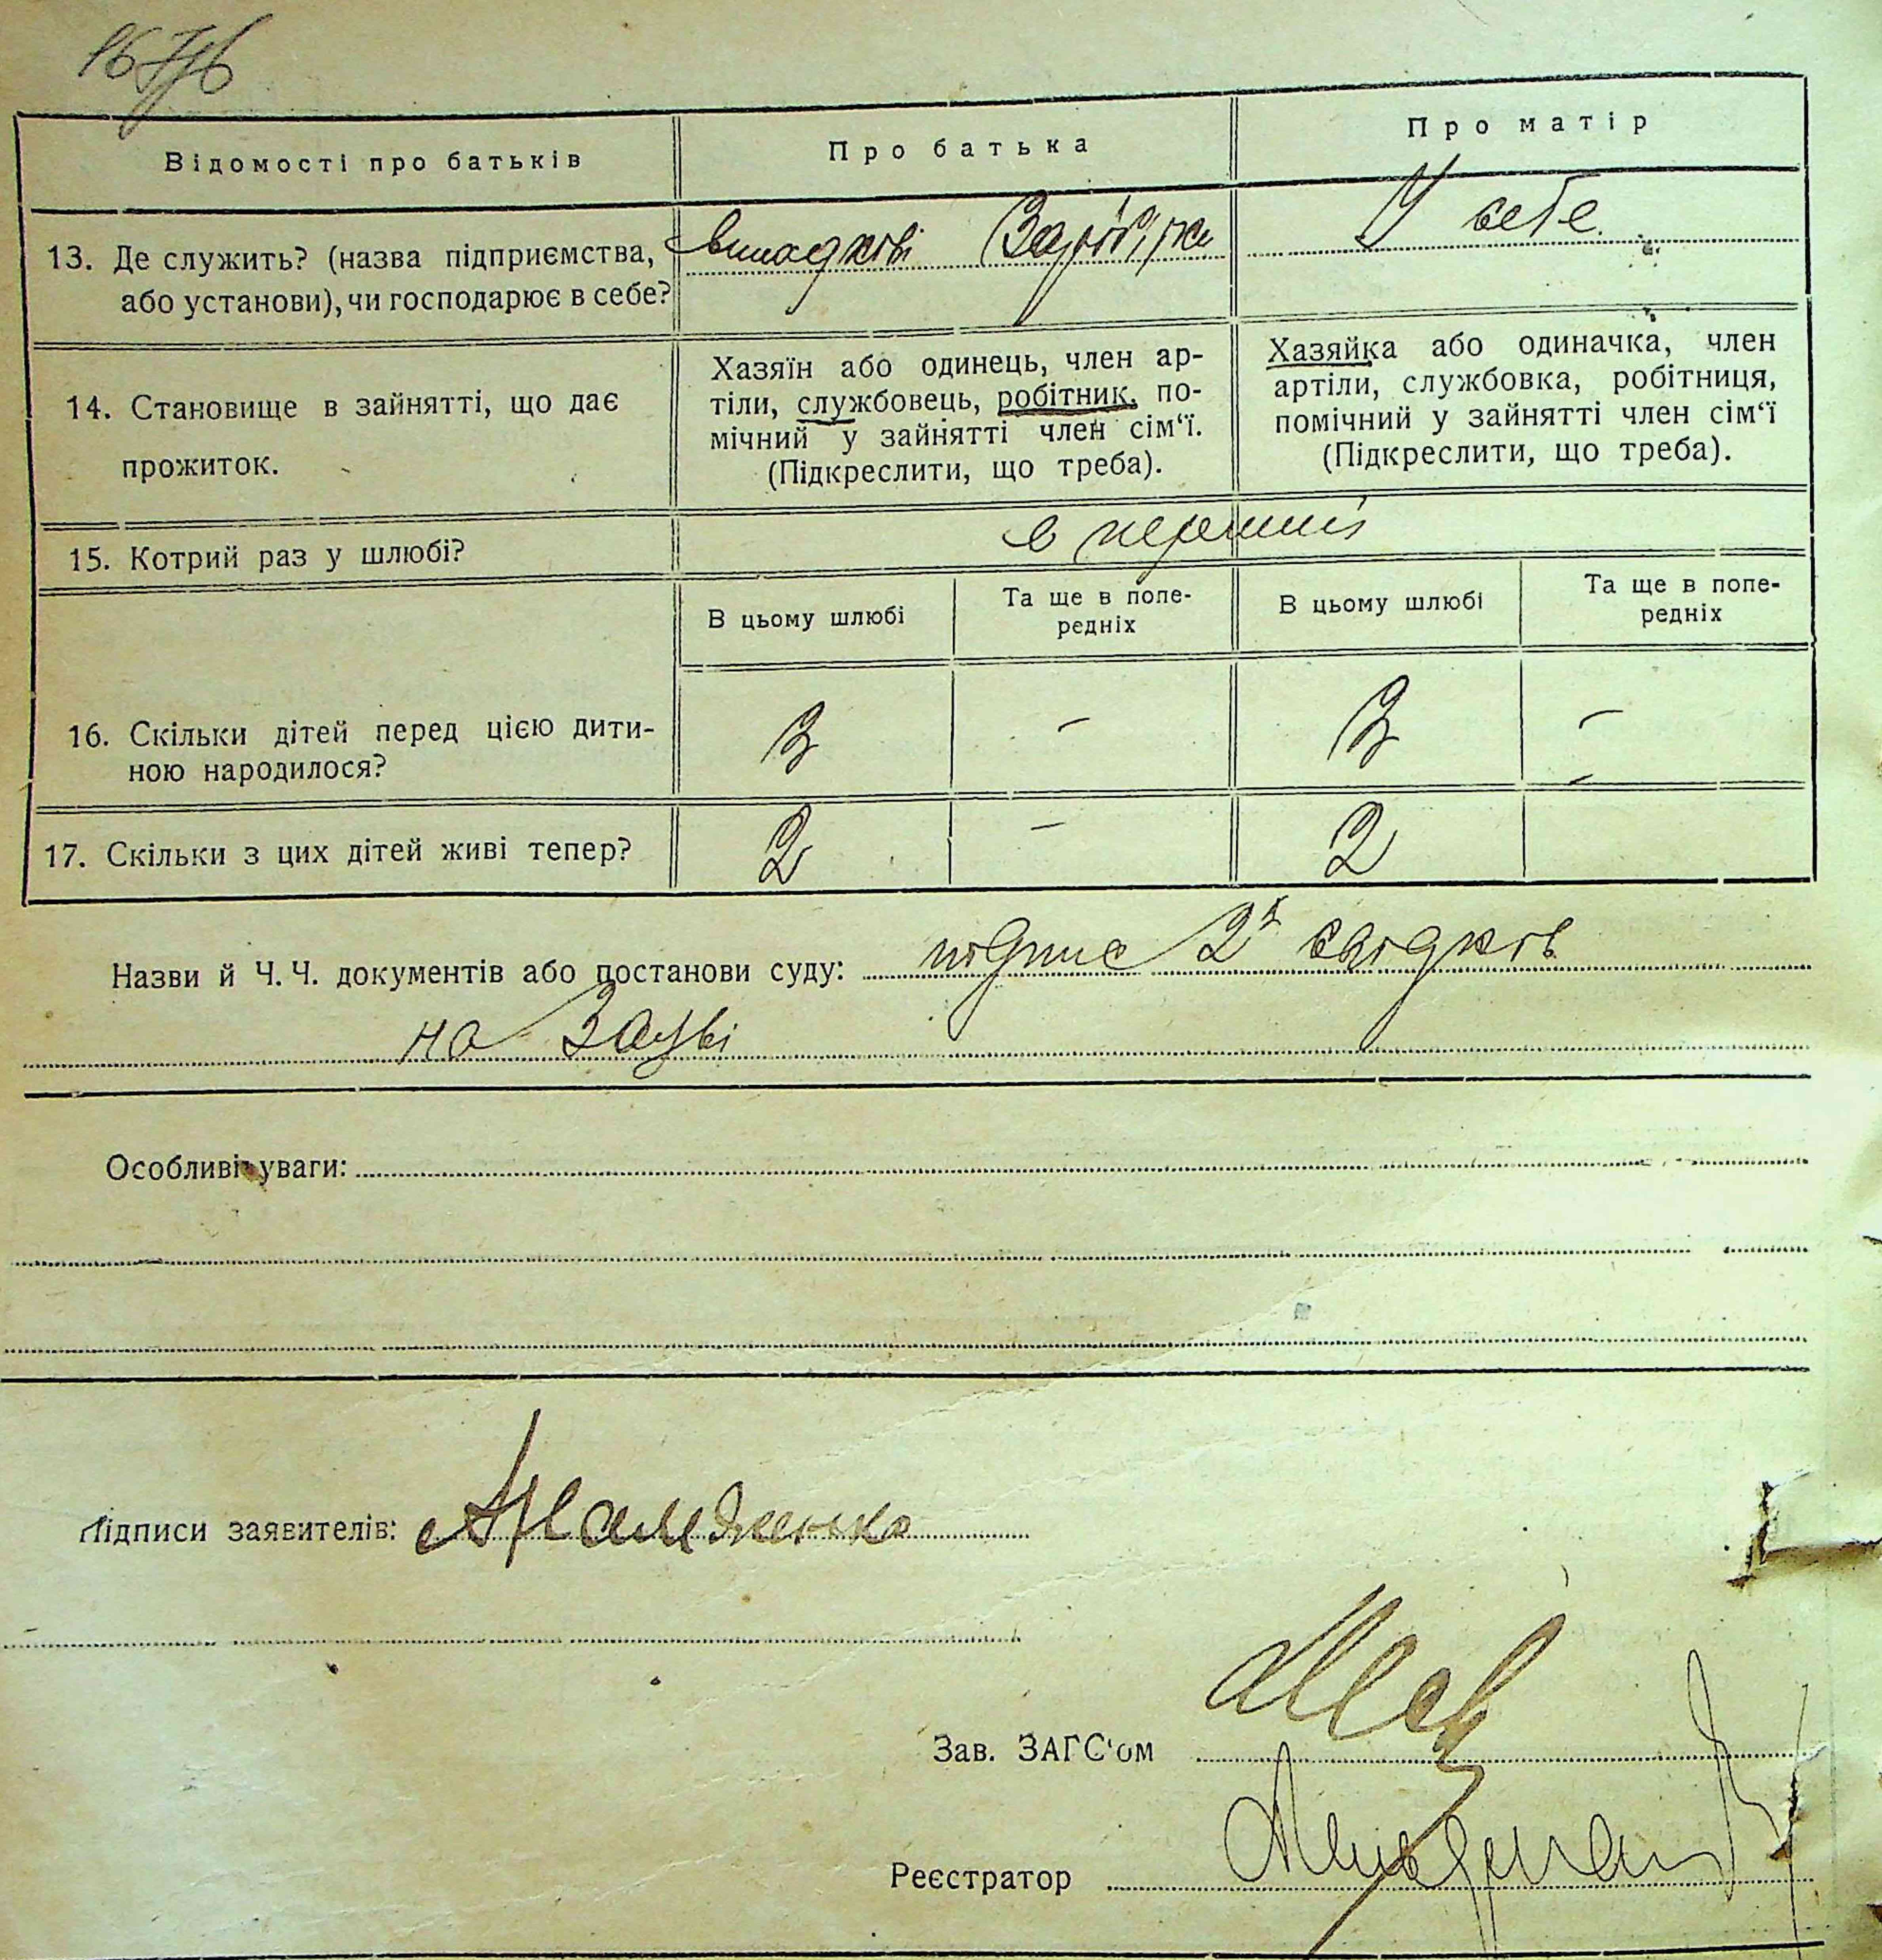 Відомості про батьків
Про батька
Про матір
13. Де служить? (назва підприємства,
або установи), чи господарює в себе?
випадкові
У себе.
14. Становище в зайнятті, що дає
прожиток.
Хазяїн або одинець, член ар-
тіли, службовець, робітник, по-
мічний у зайнятті член сім‘ї.
(Підкреслити, що треба).
Хазяйка або одиначка, член
артіли, службовка, робітниця,
помічний у зайнятті член сім‘ї
(Підкреслити, що треба).
15. Котрий раз у шлюбі?
в перший
В цьому шлюбі
Та ще в попе-
редніх
В цьому шлюбі
Та ще в попе-
редніх
16. Скільки дітей перед цією дити-
ною народилося?
3
-
3
-
17. Скільки з цих дітей живі тепер?
2
-
2
-
Назви й Ч. Ч. документів або постанови суду: підпис 2х свідків
на Заяві
Особливі уваги:
Підписи заявителів:
Зав. ЗАГС‘ом
Реєстратор